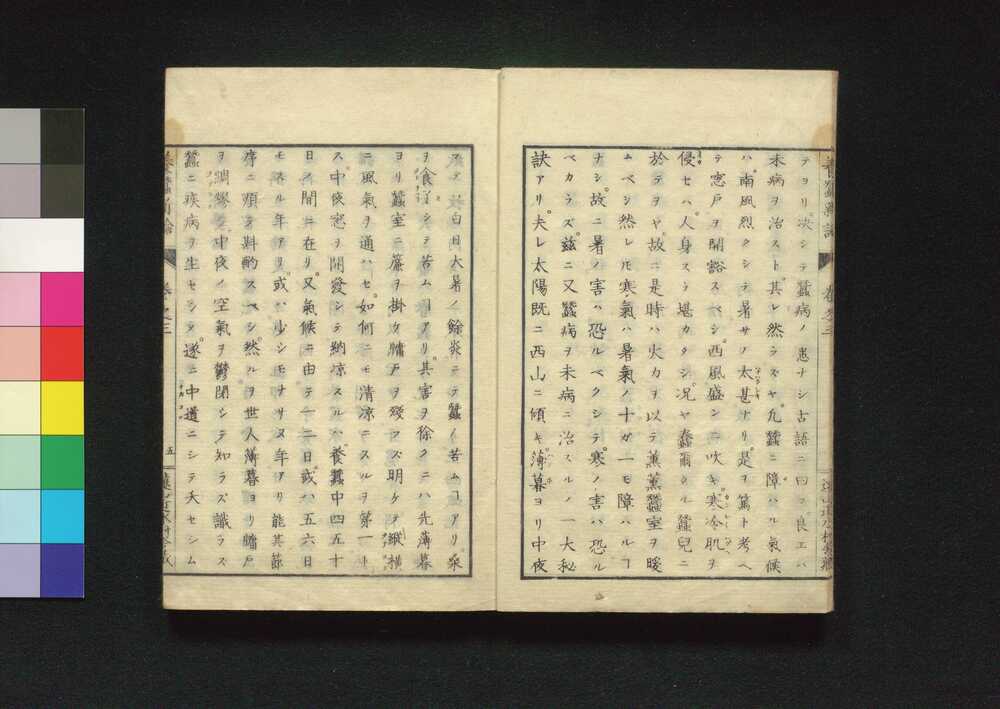 テヨリ决シテ蠶病ノ患ナシ古語ニ曰ク良工ハ
未病ヲ治スト其レ然ラズヤ凡蠶ニ障ハル氣候
ハ南風烈クシテ暑サノ太甚ナリ是ヲ篤ト考ヘ
テ窓戸ヲ開豁スベシ西風盛ンニ吹キ寒冷肌ヲ
侵セバ人身スラ堪カタシ况ヤ蠢爾タル蠶兒ニ
於テヲヤ故ニ是時ハ火力ヲ以テ薫蒸蠶室ヲ暖
ムベシ然レ𪜈寒氣ハ暑氣ノ十ガ一モ障ハルヿ
ナシ故ニ暑ノ害ハ恐ルベクシテ寒ノ害ハ恐ル
ベカラズ茲ニ又蠶病ヲ未病ニ治スルノ一大秘
訣アリ夫レ太陽既ニ西山ニ傾キ薄暮ヨリ中夜
白日大暑ノ餘炎ニテ蠶ノ苦ムヿアリ桒
ヲ食ハズシテ苦ムヿアリ其害ヲ徐クニハ先薄暮
ヨリ蠶室ニ簾ヲ掛ケ牖戸ヲ殘ラズ明ケテ縱横
ニ風氣ヲ通ハセ如何ニモ清凉ニスルヲ第一ト
ス中夜窓ヲ開發シテ納凉スルハ養蠶中四五十
日ノ間ニ在リ又氣候ニ由テ一二日或ハ五六日
モ ル年アリ或ハ少シモナリヌ年アリ能其節
序ニ順ヒ斟酌スベシ然ルヲ世人薄暮ヨリ牖戸
ヲ綢繆シ中夜ノ空氣ヲ鬱閉シテ知ラズ識ラズ
蠶ニ疾病ヲ生セシメテ遂ニ中道ニシテ夭セシム
卷之三
五